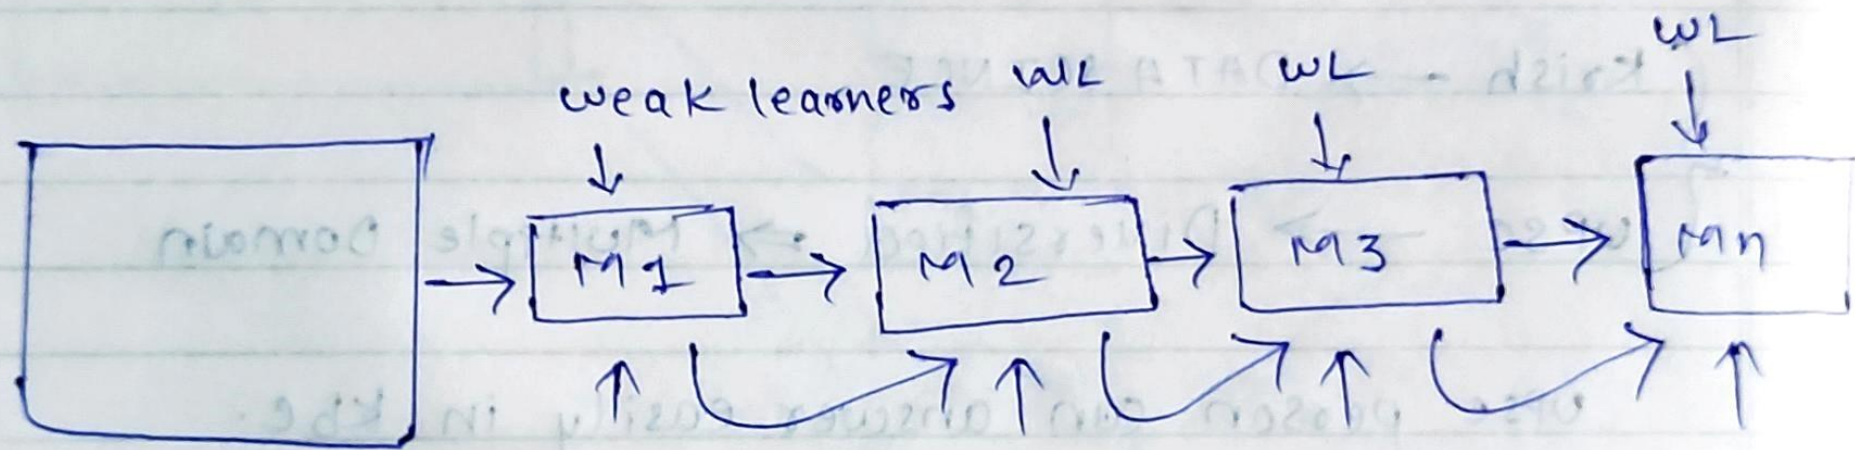 weak learners WL WL WL
M1 M2 M3 Mn